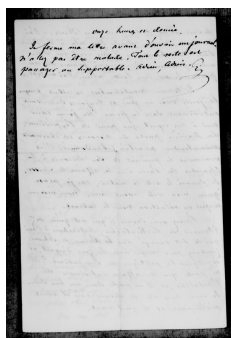 onze heures et demie.
Je ferme ma lettre avant d'ouvrir un journal,
n'allez pas être malade. Tout le reste est
passager ou supportable. Adieu, Adieu.